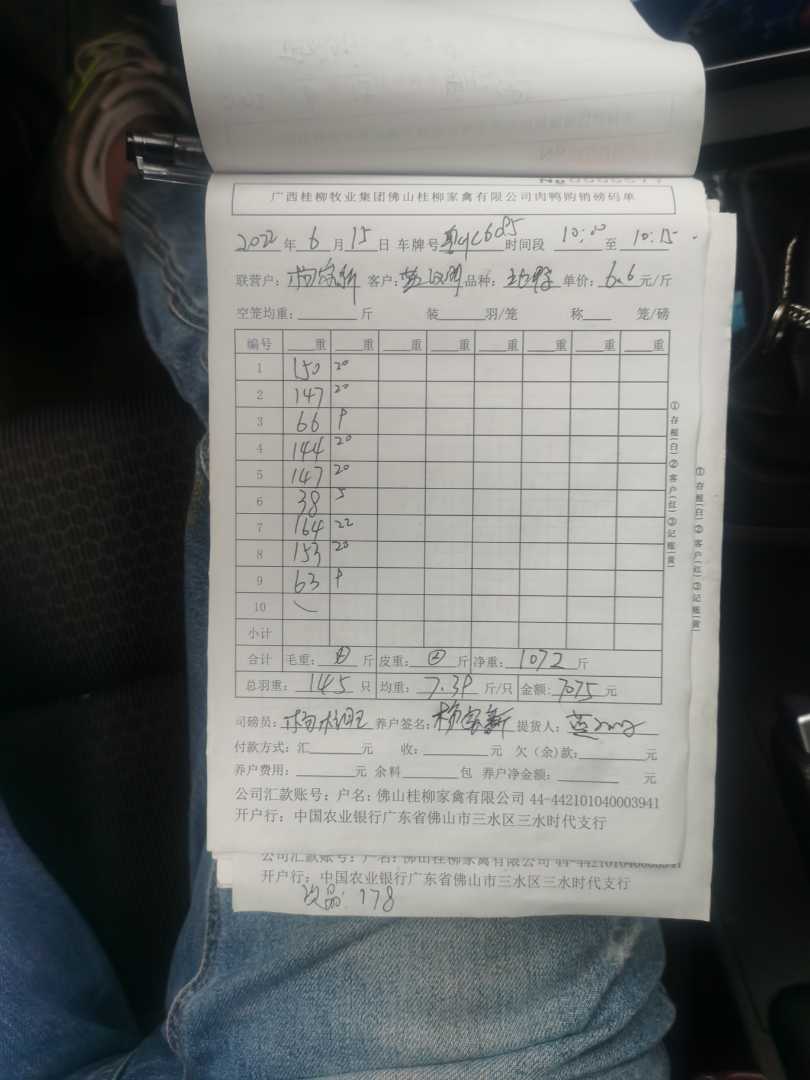 广西桂柳牧业集团佛山桂柳家禽有限公司肉鸭购销磅码单
2022年6月15日 车牌号 6085 时间段 10:00 至 10:15
联营户: 客户: 品种: 单价: 6.6 元/斤
空笼均重: 斤 装 羽/笼 称 笼/磅
编号 重 重 重 重 重 重 重 重
1 150 20
2 147 20
3 66 9
4 144 20
5 147 20
6 38 5
7 164 22
8 153 20
9 63 9
10
小计
合计 毛重: 斤 皮重: 斤 净重: 1072 斤
总羽重: 145 只 均重: 7.39 斤/只 金额: 7075 元
司磅员: 养户签名: 提货人:
付款方式: 汇 元 收: 元 欠(余)款: 元
养户费用: 元 余料 包 养户净金额: 元
公司汇款账号: 户名: 佛山桂柳家禽有限公司 44-442101040003941
开户行: 中国农业银行广东省佛山市三水区三水时代支行
①存根(白)②客户(红)③记账(黄)
①存根(白)②客户(红)③记账(黄)
公司汇款账号: 户名: 佛山桂柳家禽有限公司 44-442101040003941
开户行: 中国农业银行广东省佛山市三水区三水时代支行
次品: 178